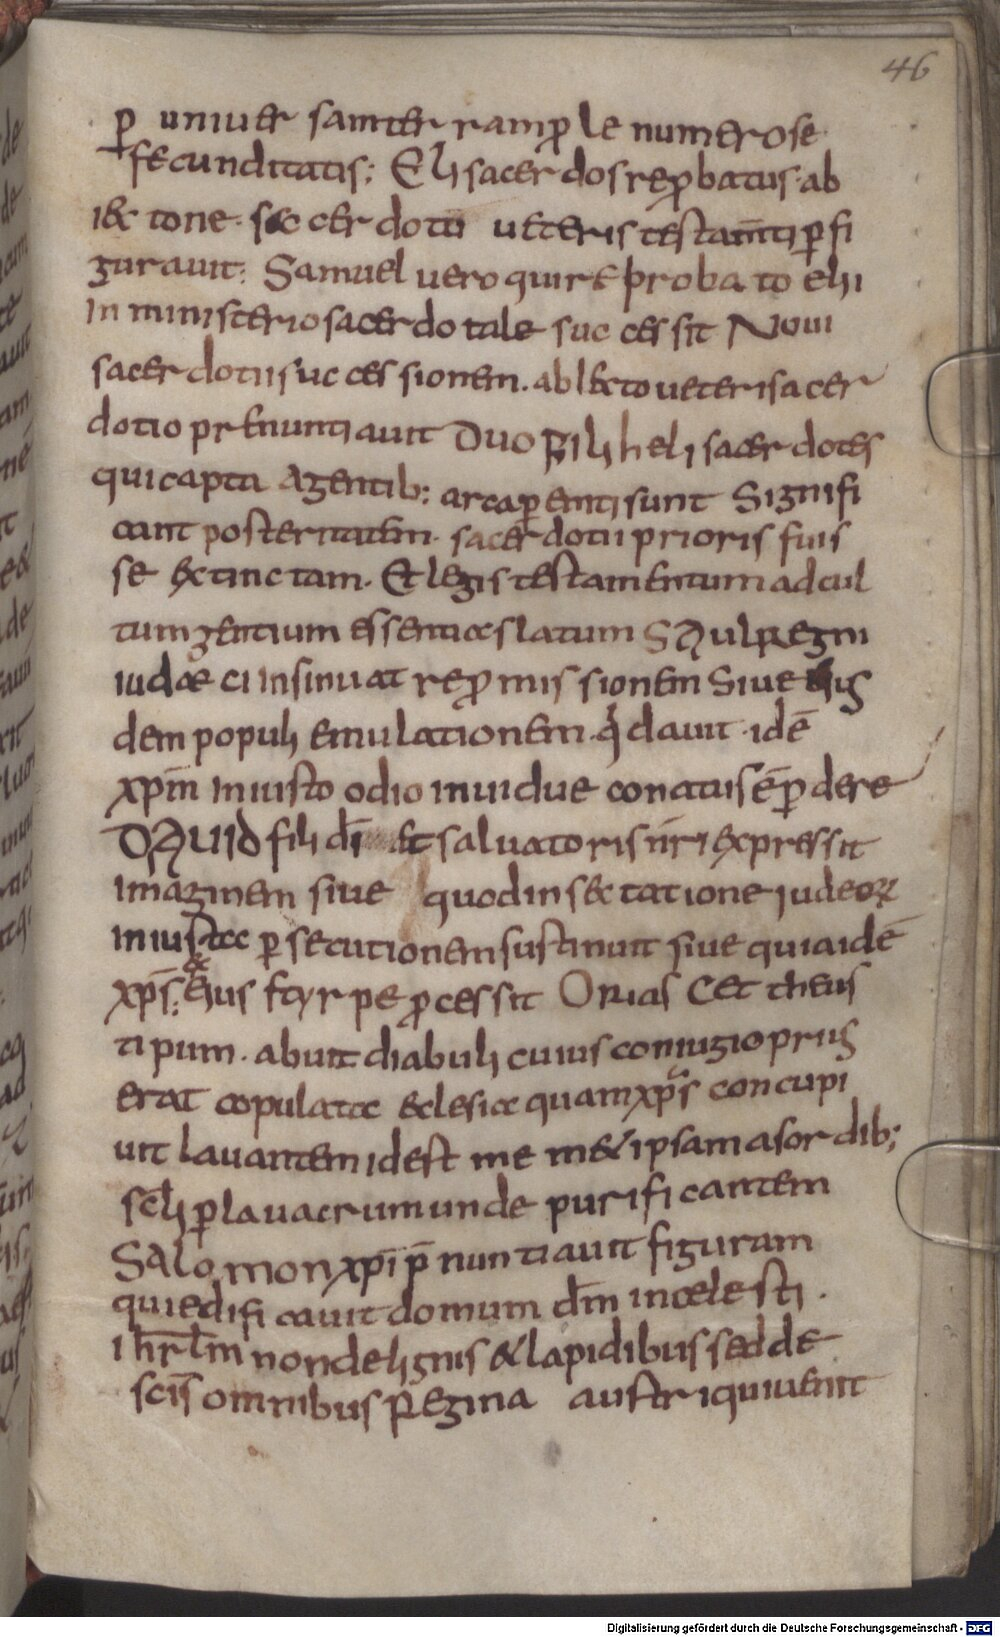 46
ꝑ uniuer samter ramꝓle numerose
fecunditatis; Eli sacer dosreꝓbatus·ab
i&c tone· sac cer dotii ueteris testam̅ti ꝑfi
gurauit; Samuel uero quire proba to ehi
In ministerio sacer do tale suc ces sit Noui
sacer dotii suc ces sionem. ab l&cto ueteri sacer
dotio prenunti auit Duo filii heli sacer dotes
qui capta Agentib; arcaꝑemti sunt Signifi
cant posteritatem· sacer dotii prioris fuis
se extinc tam· Et legis testamentum ad cul
tum gentium essentiæslatum SAul Regni
iudæ ci insinuat reꝓmis sionem Siue eiis
dem populi emulationem· q̇ dauit· idē
xp̅m iniusto odio inuidue conatus ē ꝑ dere
DAUID fili dī et saluatoris nr̅i expressit
imaginem siue quod insec tatione iudeoꝝ
iniustæ ꝑ secutionem sustinuit siue quia idē
&
xp̅s; eius styr pe ꝓces sit Orias Cet theus
ti pum· abuit diabuli cuius coniugio prius
erat copulatæ eclesiæ quam xp̅s concupi
uit lauantem id est me m&ipsam a sor dib;
sc̅li ꝑ lauacrum unde puri fi cantem
Salo mon xp̅i p̅ nun ti auit figuram
qui edifi cauit domum dm̅ in cœle sti ·
ihrl̅m non de lignis & lapidibus sed de
scis̅ omnibus Regina austri qui uenit
Digitalisierung gefördert durch die Deutsche Forschungsgemeinschaft - DFG